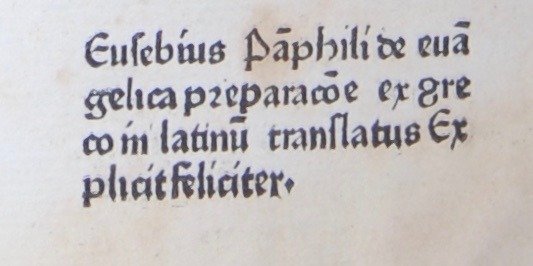 Euſebius Pāphili de euā
gelica preparacōe ex gre
co in latinū tranſlatus Ex
plicit feliciter.